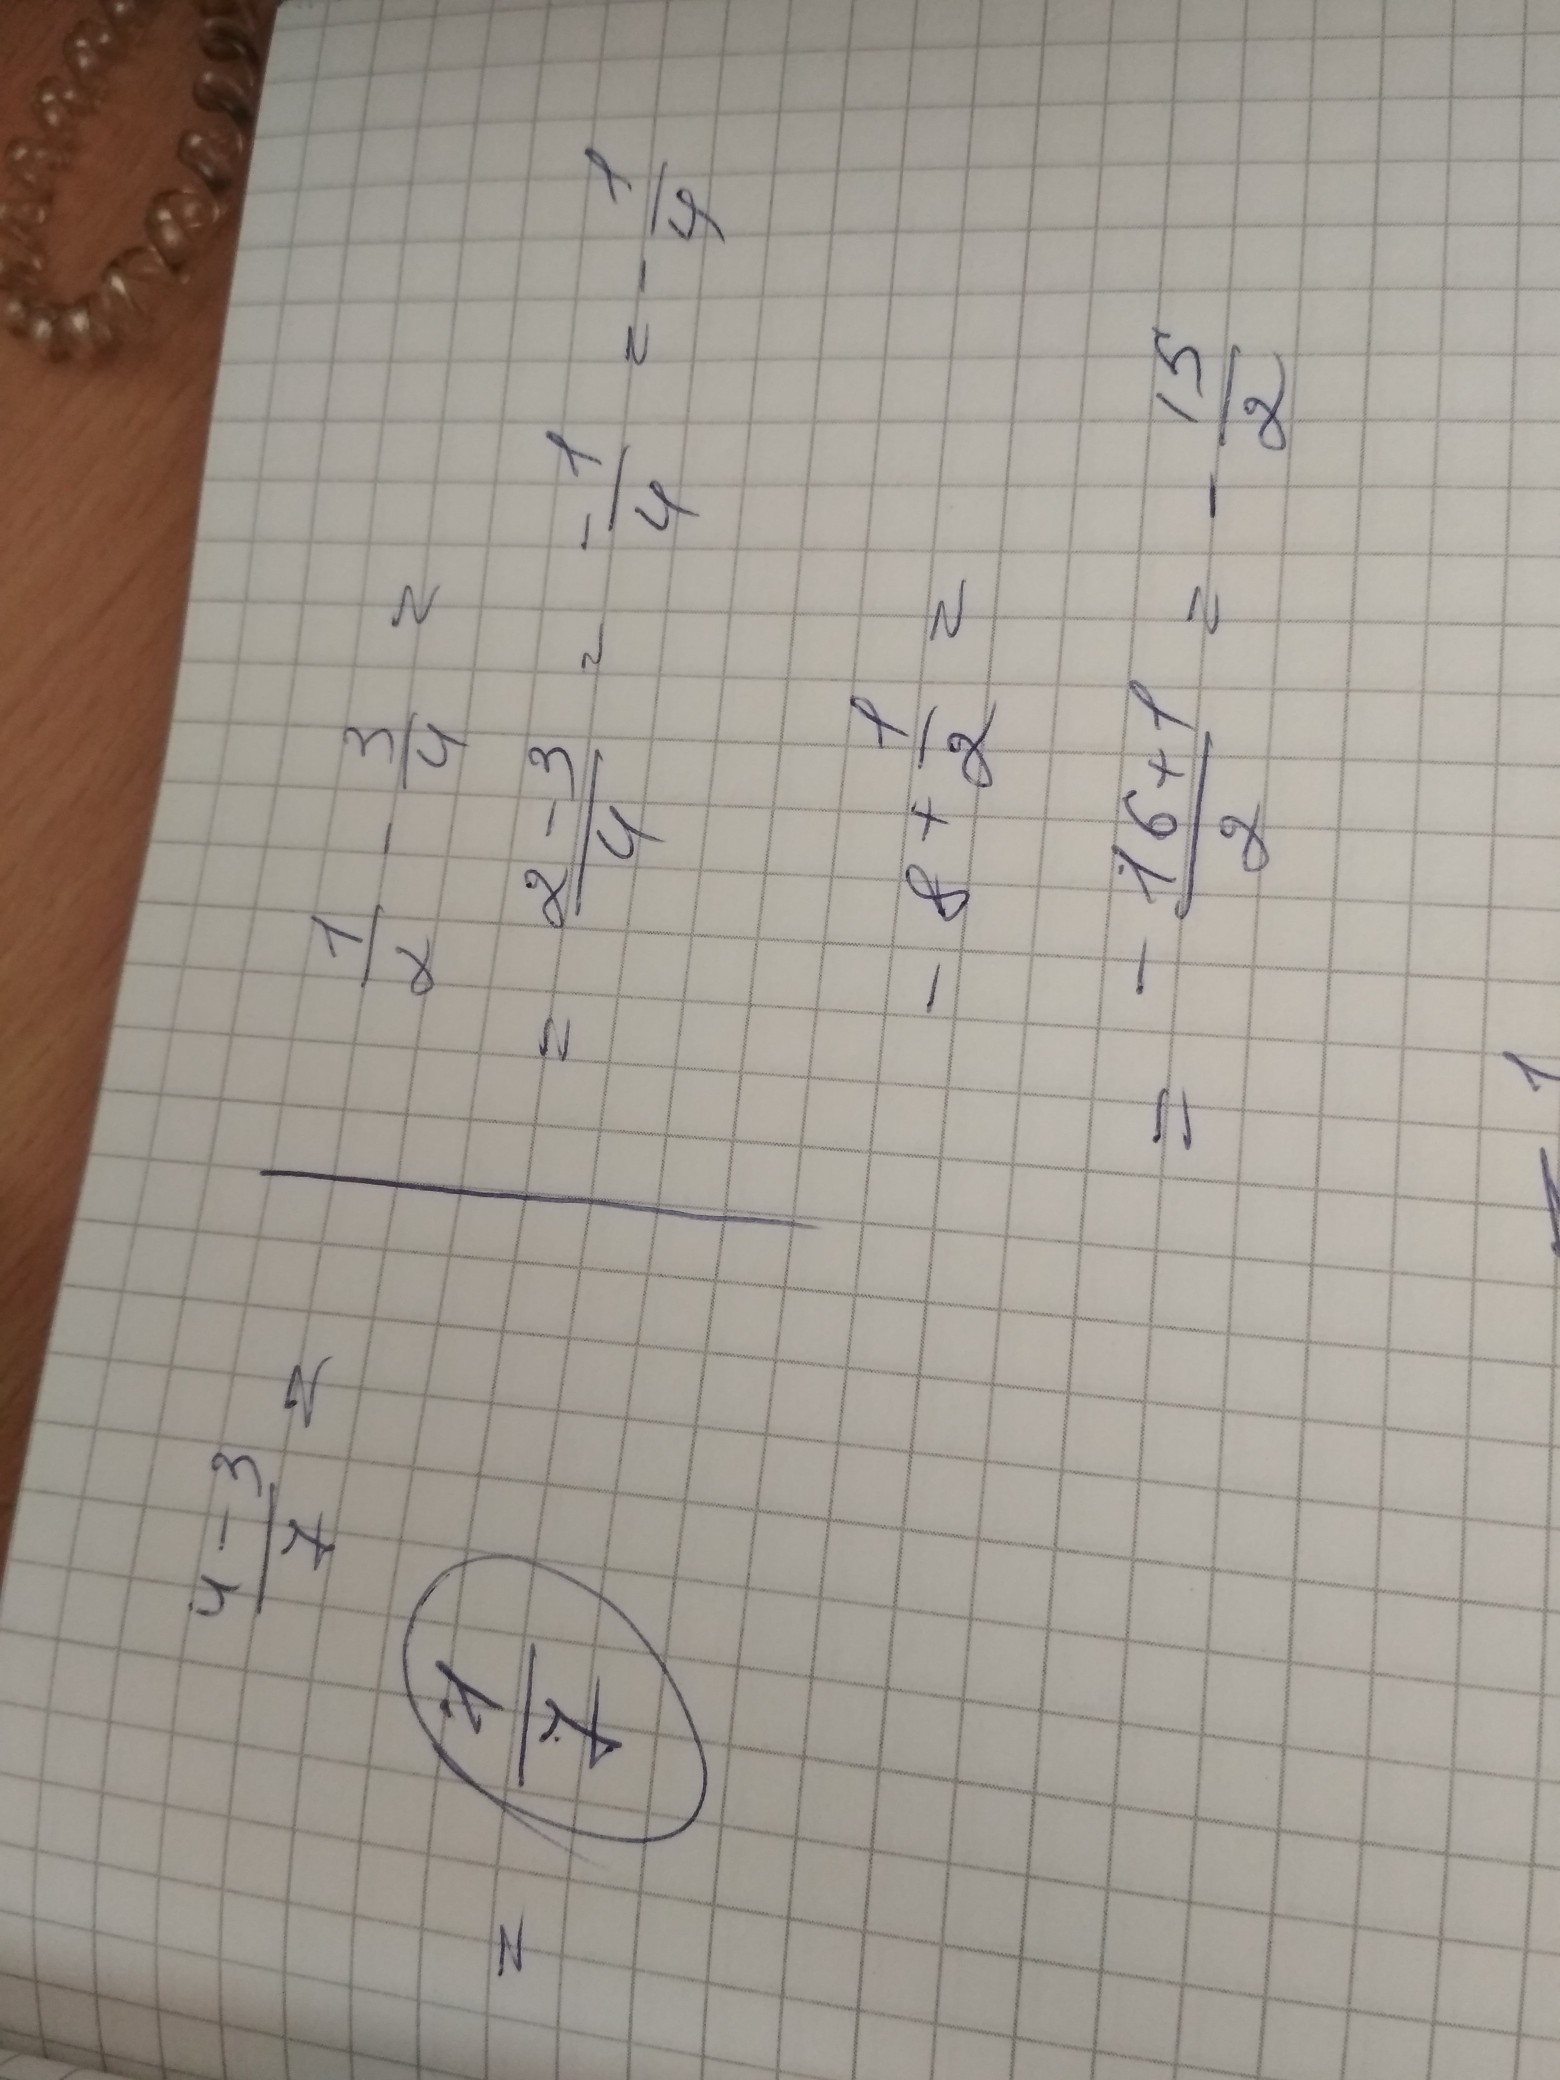 4-3/7 =
= 1/7
1/2 - 3/4 =
= 2-3/4 = -1/4 = -1/4
-8 + 1/2 =
= -16+1/2 = -15/2
1